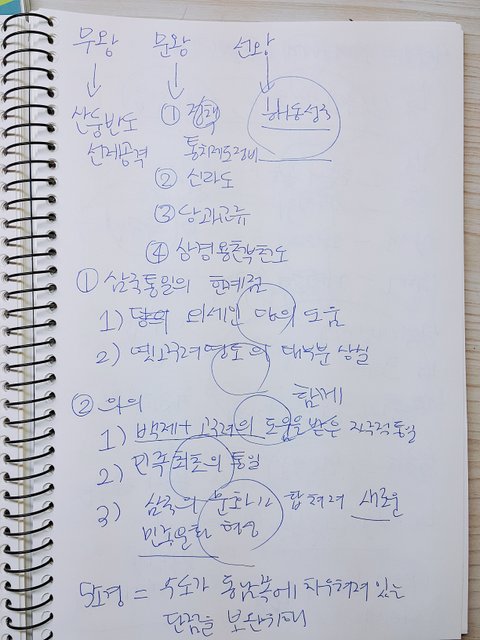 무왕 문왕 선왕
산둥반도 ① 정책 해동성국
선제공격 통치제도정비
② 신라도
③ 당과교류
④ 상경용천부천도
① 삼국통일의 한계점
1) 당의 외세인 당의 도움
2) 옛고구려땅도의 대부분 상실
② 의의 함께
1) 백제+고구려의 도움을 받은 자국적통일
2) 민족최초의 통일
3) 삼국의 문화가 합쳐져 새로운
민족문화 형성
5소경 = 수도가 동남쪽에 치우쳐져 있는
단점을 보완하며